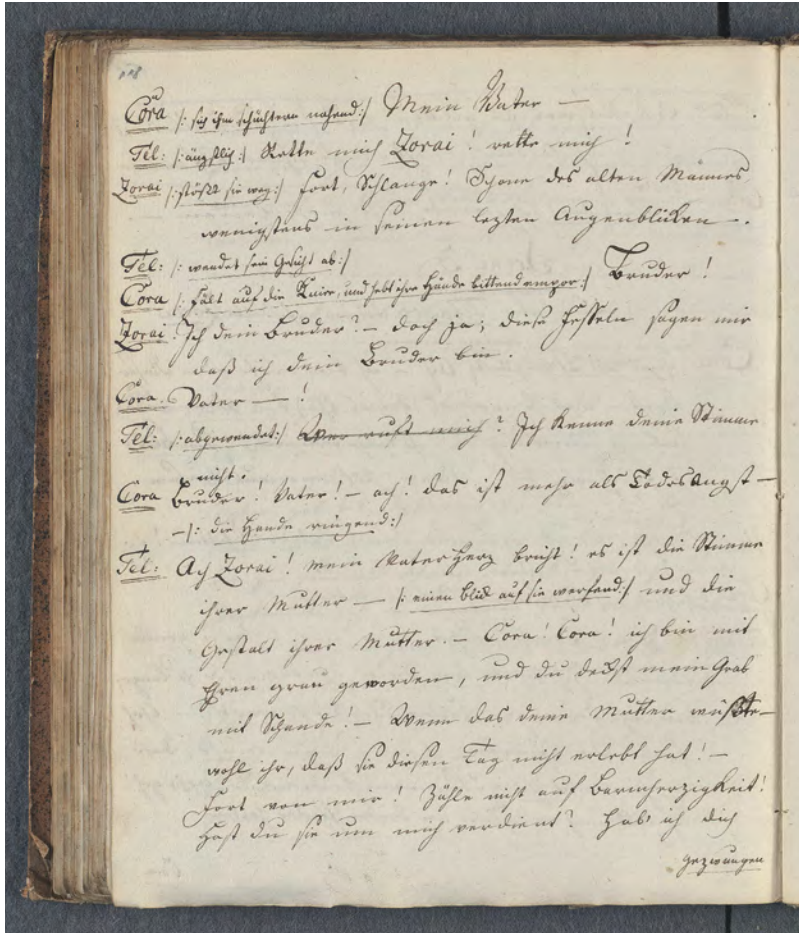 Cora /: sich ihm schüchtern nahend:/ Mein Vater —
Tel: /: ängstlich:/ Rette mich Zorai! rette mich!
Zorai /: stößt sie weg:/ Fort, Schlange! Schone des alten Mannes
wenigstens in seinen lezten Augenblicken —.
Tel: /: wendet sein Gesicht ab:/
Cora /: fält auf die Kniee, und hebt ihre Hände bittend empor:/ Bruder!
Zorai. Ich dein Bruder? — doch ja; diese Fesseln sagen mir
daß ich dein Bruder bin.
Cora. Vater — !
Tel: /: abgewendet:/ Wer ruft mich? Ich kenne deine Stimme
nicht.
Cora Bruder! Vater! — ach! das ist mehr als Todesangst —
— /: die Hände ringend:/
Tel: Ach Zorai! mein Vaterherz bricht! es ist die Stimme
ihrer Mutter — /: einen Blick auf sie werfend:/ und die
Gestalt ihrer Mutter. — Cora! Cora! ich bin mit
Ehren grau geworden, und du deckst mein Grab
mit Schande! — Wenn das deine Mutter wüßte —
wohl ihr, daß sie diesen Tag nicht erlebt hat! —
Fort von mir! Zähle nicht auf Barmherzigkeit!
Hast du sie um mich verdient? Hab' ich dich
gezwungen